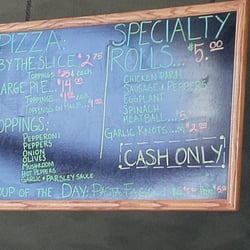 PIZZA:
BY THE SLICE $2.75
TOPPINGS .25¢ each
LARGE PIE... 14.00
TOPPINGS $
TOPPINGS ON HALF
TOPPINGS:
PEPPERONI
PEPPERS
ONION
OLIVES
MUSHROOM
HOT PEPPERS
GARLIC + PARSLEY SAUCE
SPECIALTY
ROLLS... $5.00
CHICKEN PARM
SAUSAGE + PEPPERS
EGGPLANT
SPINACH
MEATBALL
GARLIC KNOTS... $2.00
CASH ONLY
SOUP OF THE DAY: PASTA FAGIOLI